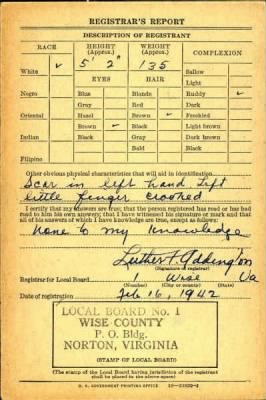 REGISTRAR'S REPORT
DESCRIPTION OF REGISTRANT
RACE HEIGHT (Approx.) WEIGHT (Approx.) COMPLEXION
White ✓ 5' 2" 135 Sallow
EYES HAIR Light
Negro Blue Blonde Ruddy ✓
Gray Red Dark
Oriental Hazel Brown ✓ Freckled
Brown ✓ Black Light brown
Indian Black Gray Dark brown
Bald Black
Filipino
Other obvious physical characteristics that will aid in identification
Scar in left hand Left
little finger crooked
I certify that my answers are true; that the person registered has read or has had
read to him his own answers; that I have witnessed his signature or mark and that
all of his answers of which I have knowledge are true, except as follows:
None to my knowledge
Luther F. Addington
(Signature of registrar)
Registrar for Local Board 1 Wise Va
(Number) (City or county) (State)
Date of registration Feb 16, 1942
LOCAL BOARD No. 1
WISE COUNTY
P. O. Bldg.
NORTON, VIRGINIA
(STAMP OF LOCAL BOARD)
(The stamp of the Local Board having jurisdiction of the registrant
shall be placed in the above space)
U. S. GOVERNMENT PRINTING OFFICE